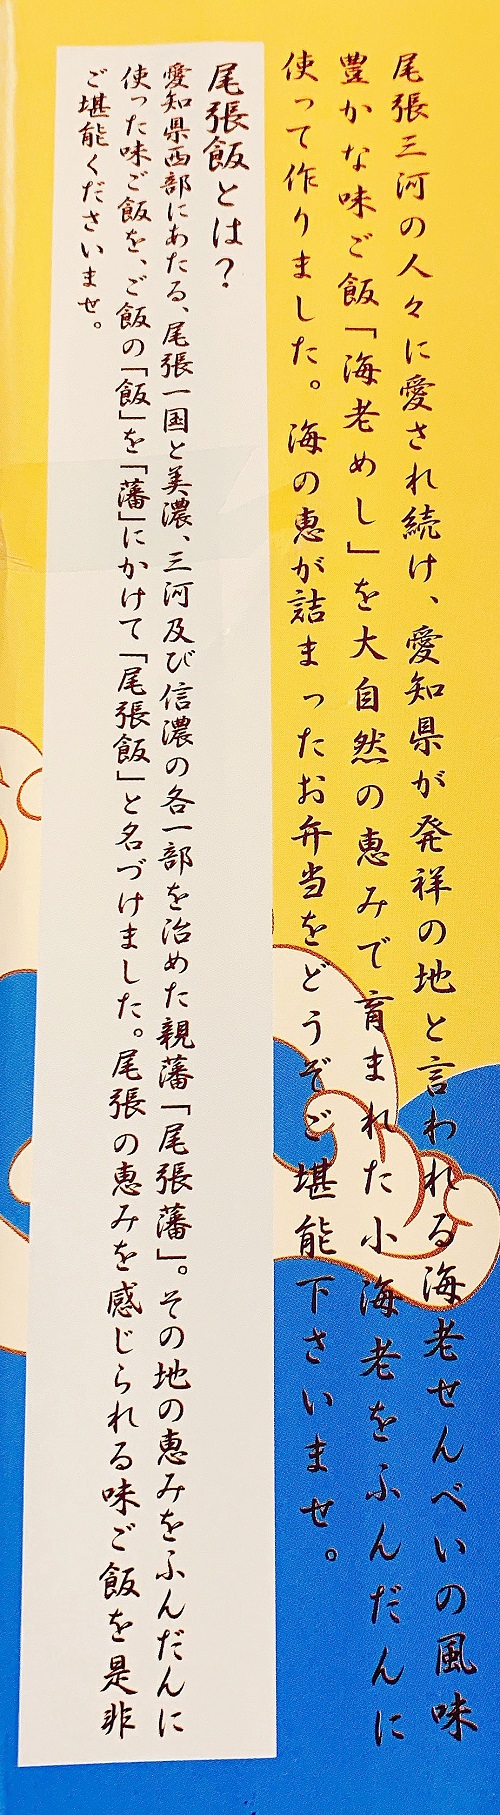 尾張三河の人々に愛され続け、愛知県が発祥の地と言われる海老せんべいの風味
豊かな味ご飯「海老めし」を大自然の恵みで育まれた小海老をふんだんに
使って作りました。海の恵が詰まったお弁当をどうぞご堪能下さいませ。
尾張飯とは？
愛知県西部にあたる、尾張一国と美濃、三河及び信濃の各一部を治めた親藩「尾張藩」。その地の恵みをふんだんに
使った味ご飯を、ご飯の「飯」を「藩」にかけて「尾張飯」と名づけました。尾張の恵みを感じられる味ご飯を是非
ご堪能くださいませ。